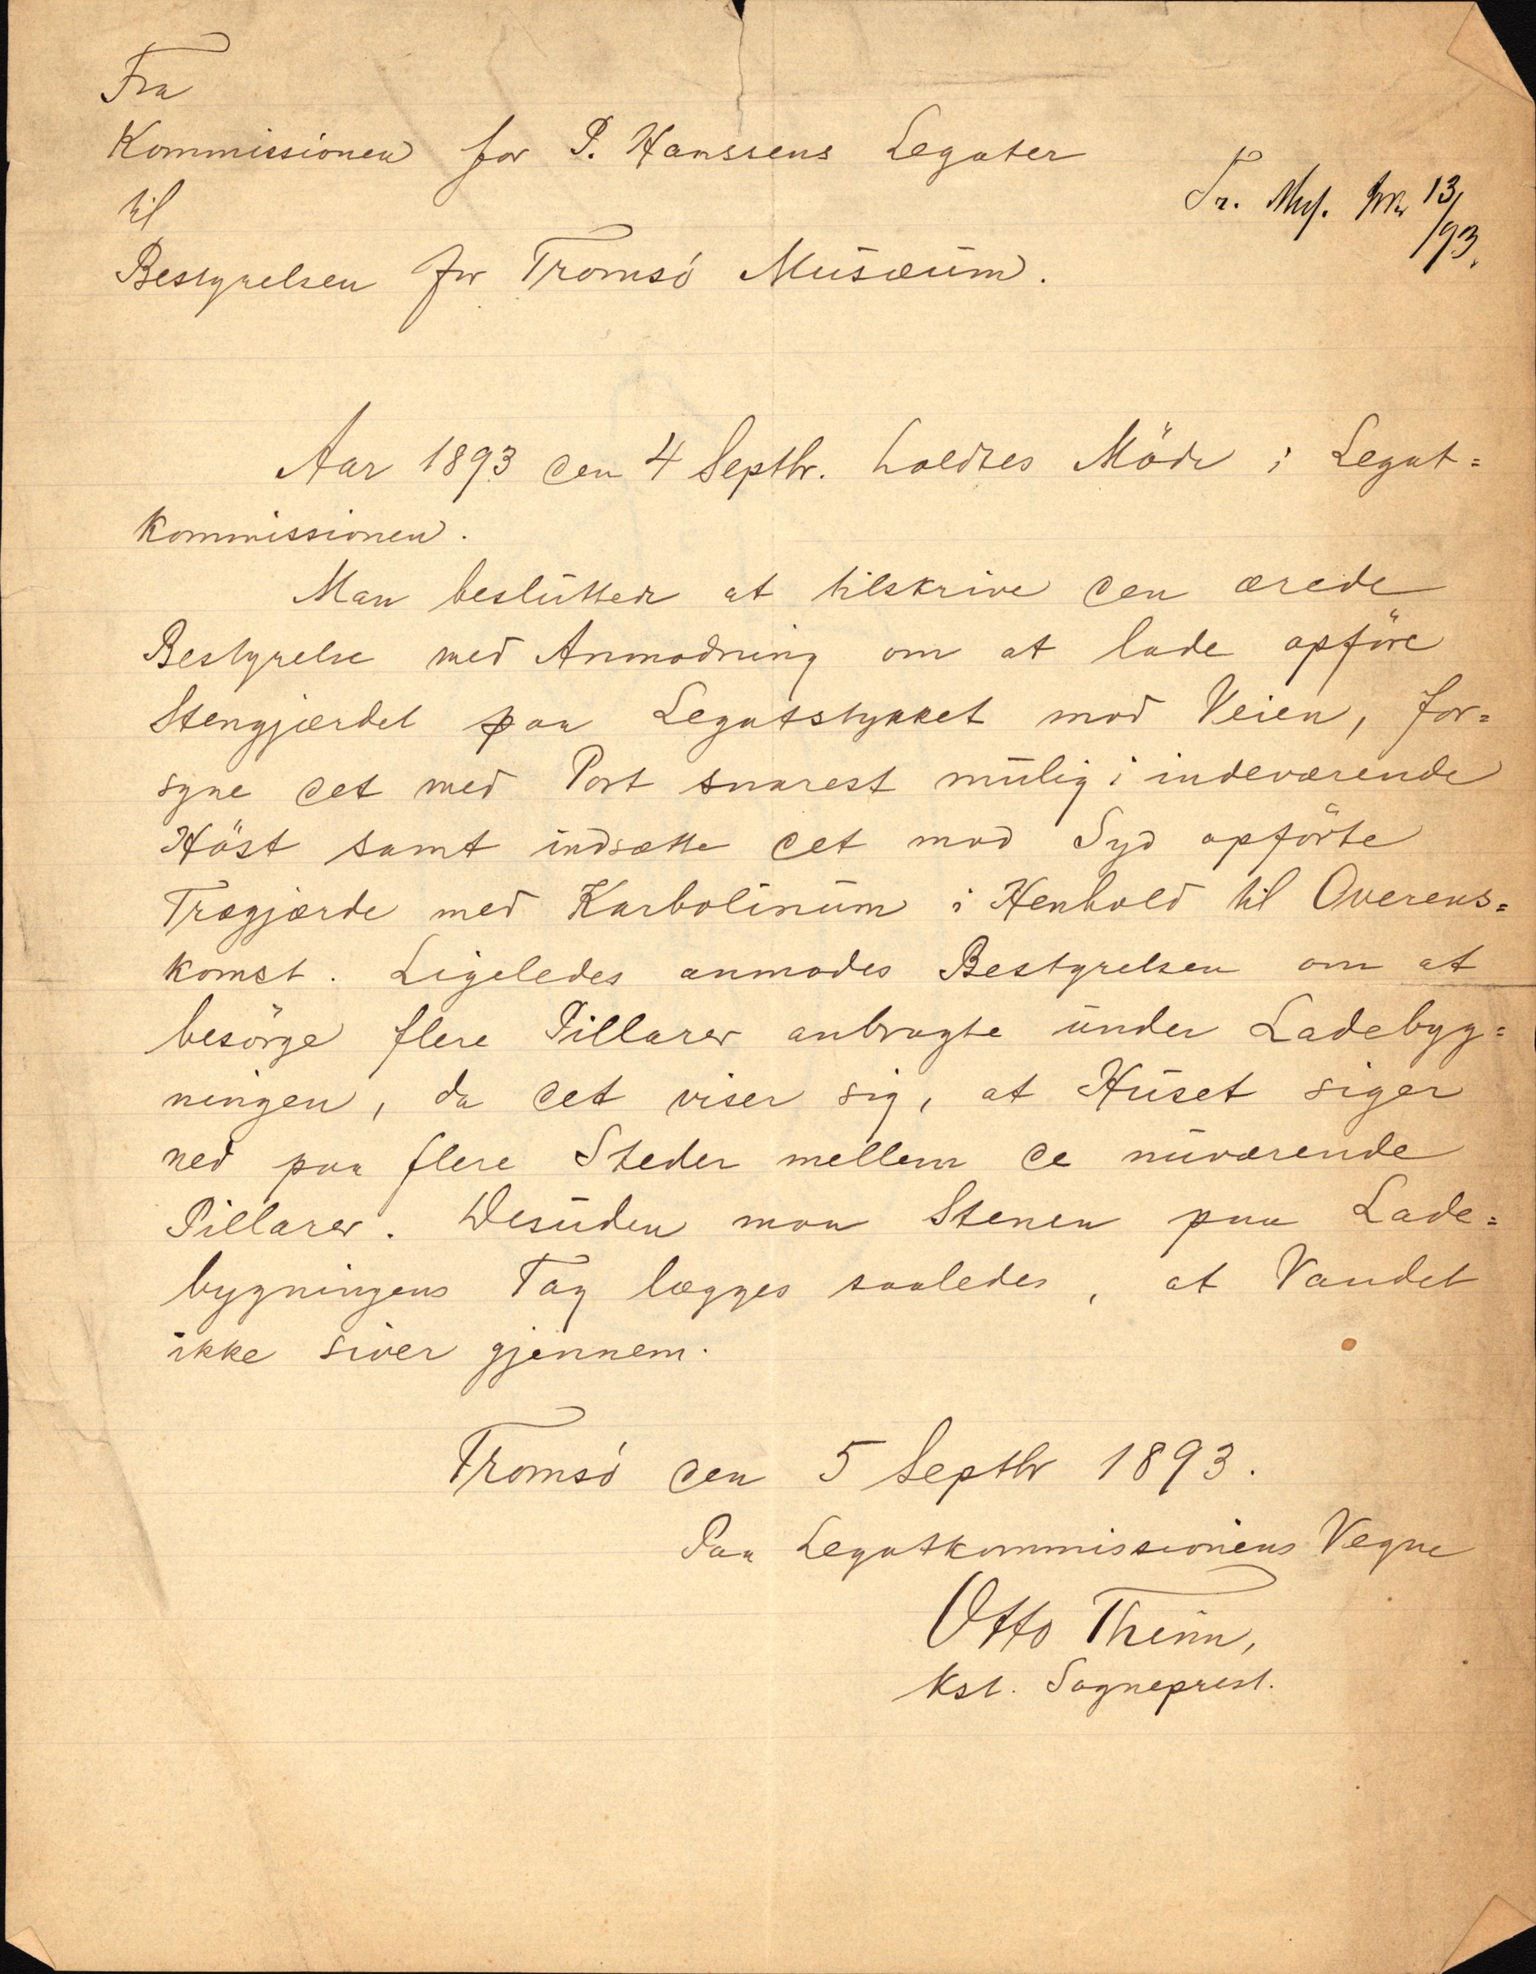 Fra
Kommissionen for P. Hanssens Legater
Tr. Mus. 13/93.
til
Bestyrelsen for Tromsö Musæum.
Aar 1893 den 4 Septbr. holdtes Möde i Legat=
kommissionen.
Man besluttede at tilskrive den ærede
Bestyrelse med Anmodning om at lade opföre
Stengjærdet paa Legatstykket mod Veien, for=
syne det med Port snarest mulig i indeværende
Höst samt indsætte det mod Syd opförte
Trægjærde med Karbolinium i Henhold til Overens=
komst. Ligeledes anmodes Bestyrelsen om at
besörge flere Pillarer anbragte under Ladebyg=
ningen, da det viser sig, at Huset siger
ned paa flere Steder mellem de nuværende
Pillarer. Desuden maa Stenen paa Lade=
bygningens Tag lægges saaledes, at Vandet
ikke siver gjennem.
Tromsö den 5 Septbr 1893.
Paa Legatkommissionens Vegne
Otto
kst. Sogneprest.